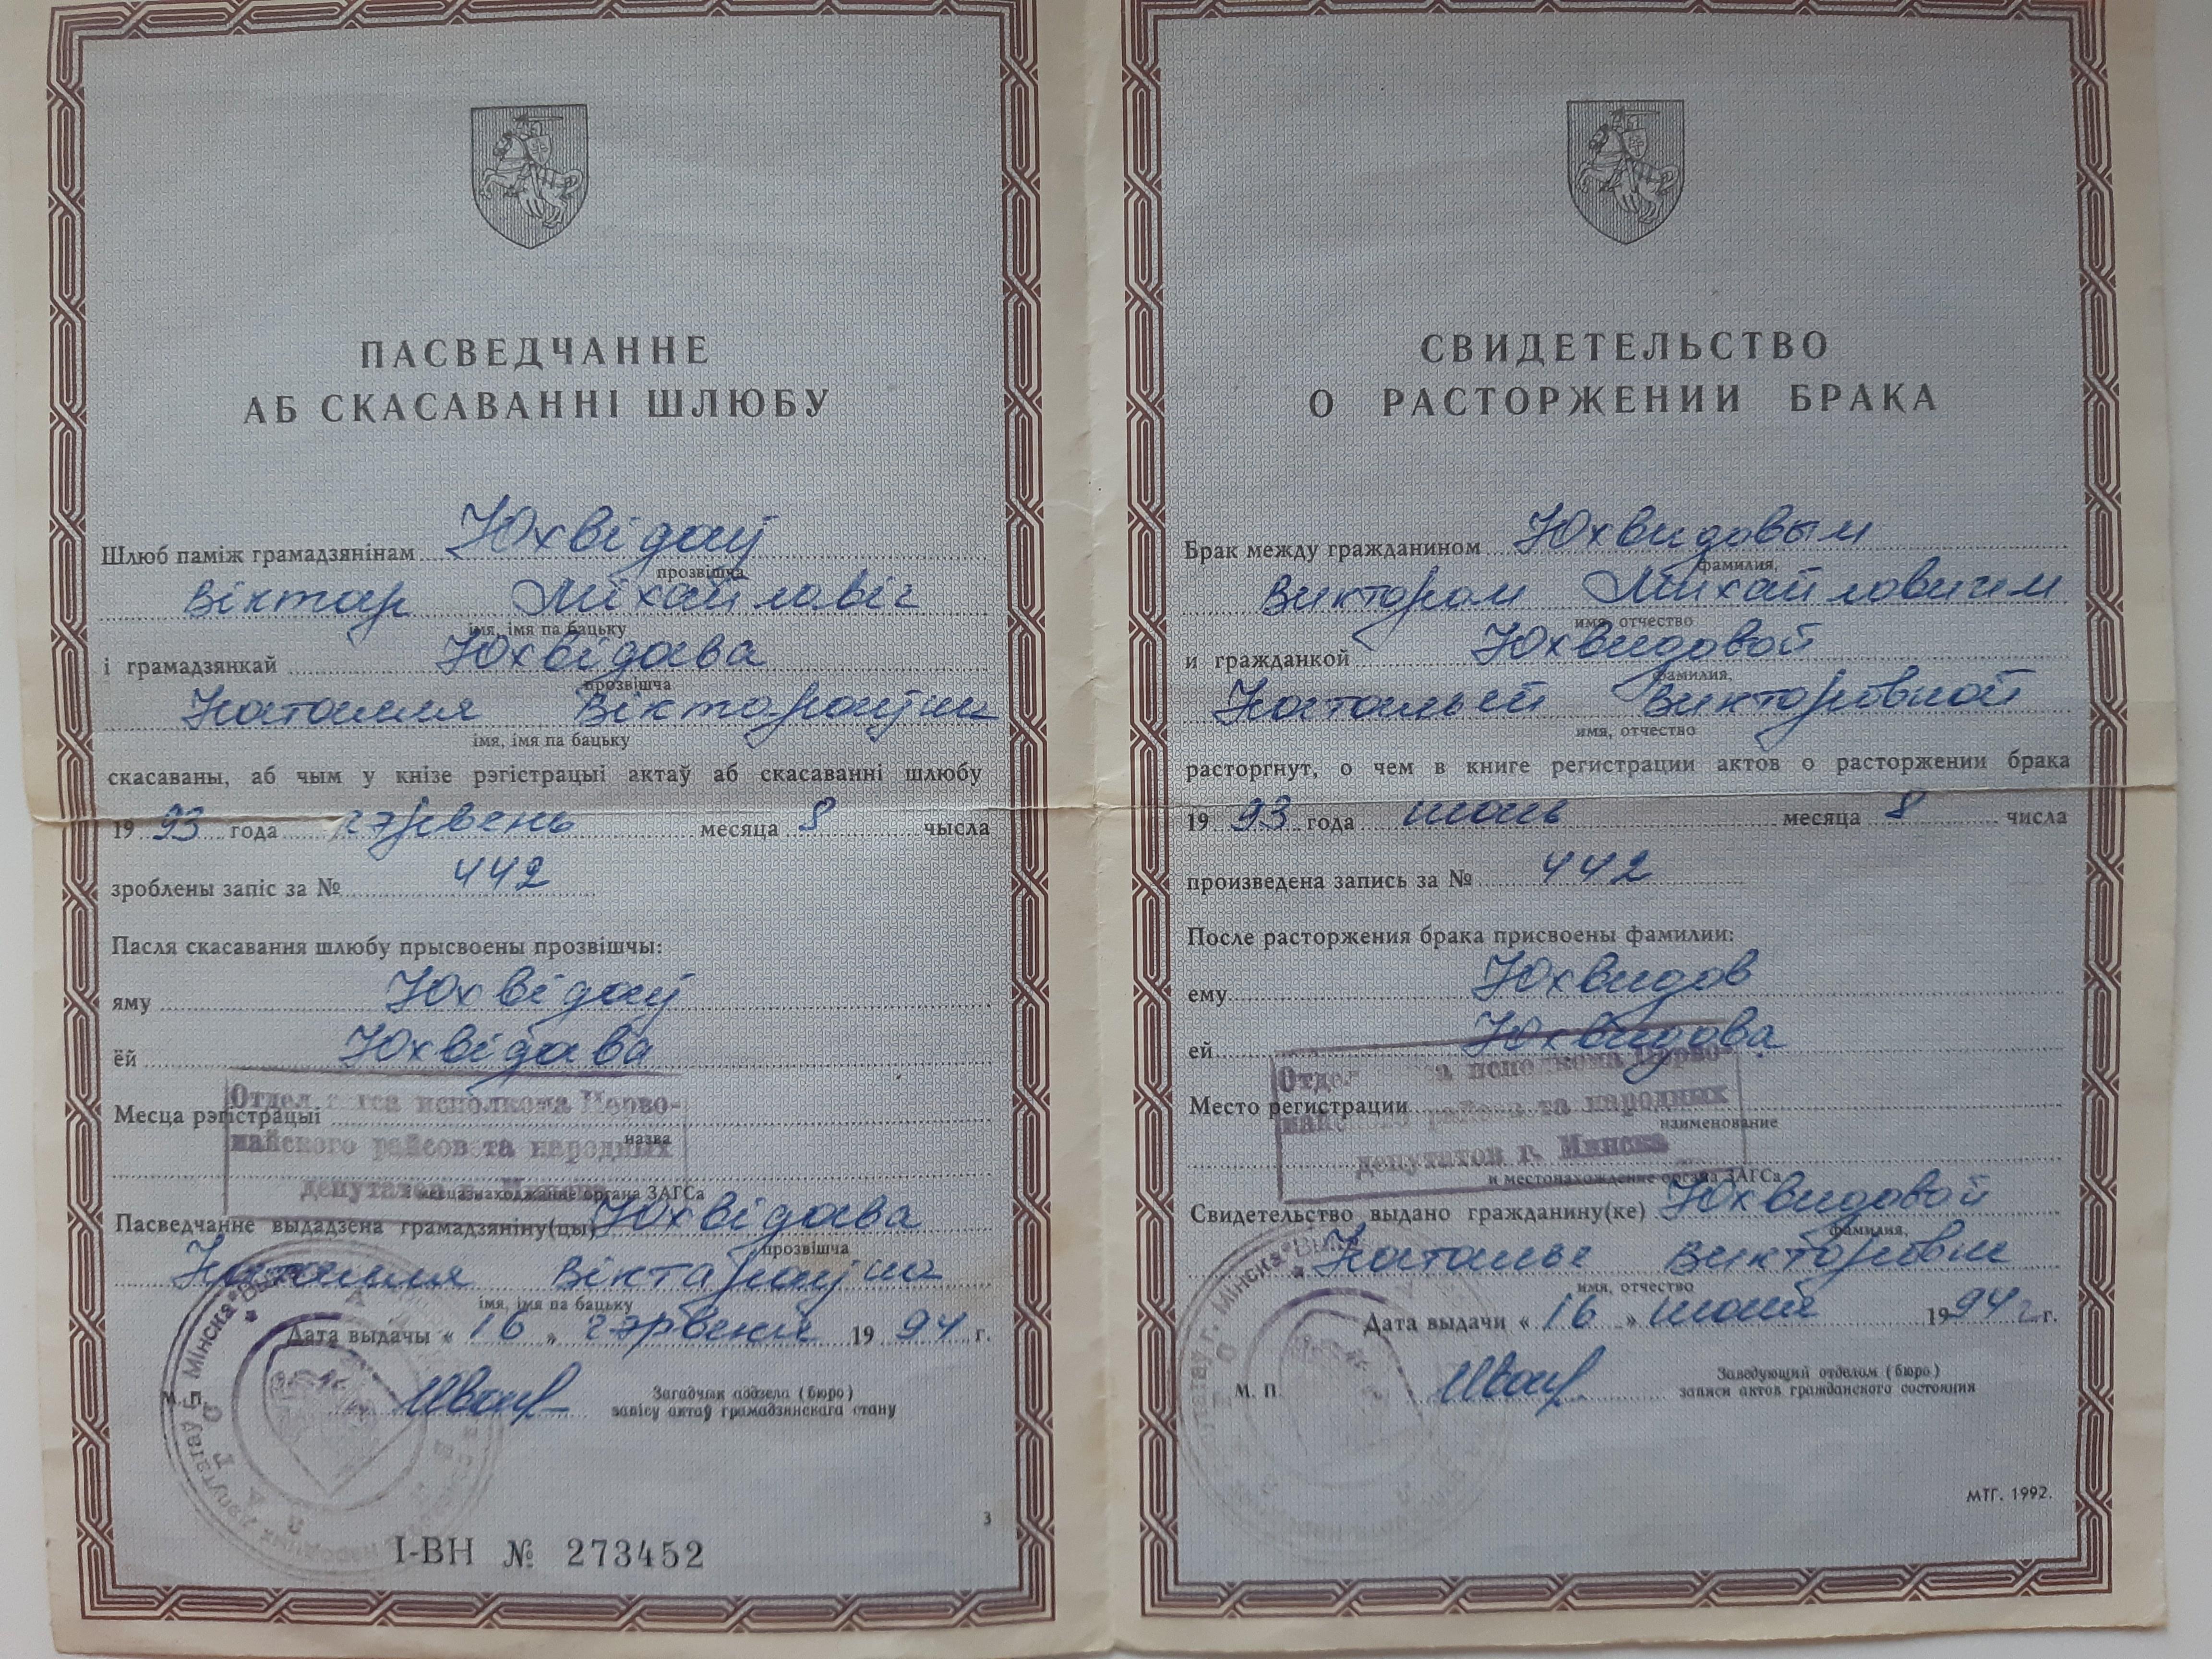 ПАСВЕДЧАННЕ
АБ СКАСАВАННІ ШЛЮБУ
Шлюб паміж грамадзянінам Юхвідаў
прозвішча
Віктар Міхайлавіч
імя, імя па бацьку
і грамадзянкай Юхвідава
прозвішча
Наталля Віктараўна
імя, імя па бацьку
скасаваны, аб чым у кнізе рэгістрацыі актаў аб скасаванні шлюбу
19 93 года чэрвень месяца 8 чысла
зроблены запіс за № 442
Пасля скасавання шлюбу прысвоены прозвішчы:
яму Юхвідаў
ёй Юхвідава
Отдел загса исполкома Перво-
Месца рэгістрацыі
майского райсовета народных
назва
депутатов г. Минска
і месцазнаходжанне органа ЗАГСа
Пасведчанне выдадзена грамадзяніну(цы) Юхвідава
прозвішча
Наталля Віктараўна
імя, імя па бацьку
Дата выдачы « 16 » чэрвеня 19 94 г.
Загадчык аддзела (бюро)
запісу актаў грамадзянскага стану
3
І-ВН № 273452
СВИДЕТЕЛЬСТВО
О РАСТОРЖЕНИИ БРАКА
Брак между гражданином Юхвидовым
фамилия,
Виктором Михайловичем
имя, отчество
и гражданкой Юхвидовой
фамилия,
Натальей Викторовной
имя, отчество
расторгнут, о чем в книге регистрации актов о расторжении брака
19 93 года июнь месяца 8 числа
произведена запись за № 442
После расторжения брака присвоены фамилии:
ему Юхвидов
ей Юхвидова
Отдел загса исполкома Перво-
Место регистрации
майского райсовета народных
наименование
депутатов г. Минска
и местонахождение органа ЗАГСа
Свидетельство выдано гражданину(ке) Юхвидовой
фамилия,
Наталье Викторовне
имя, отчество
Дата выдачи « 16 » июня 19 94 г г.
М. П. Заведующий отделом (бюро)
записи актов гражданского состояния
МТГ. 1992.